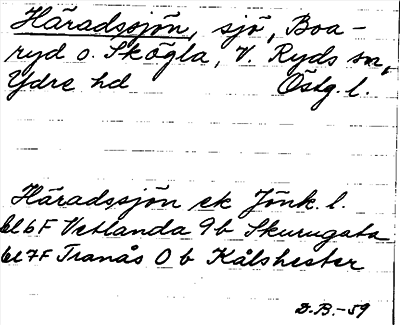 Häradssjön, sjö, Boa-
ryd o. Skögla, V. Ryds sn,
Ydre hd Östg. l.
Häradssjön ek Jönk. l.
bl 6F Vetlanda 9b Skurugata
bl 7F Tranås 0b Kålshester
B.-59